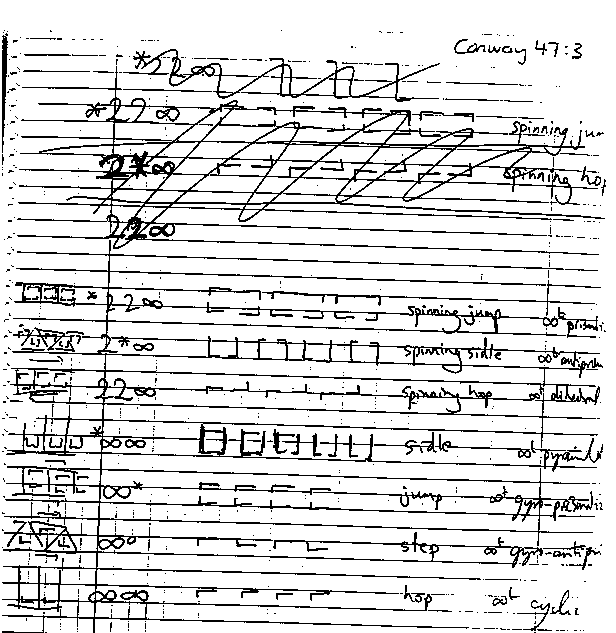 Conway 47:3
*22∞
*22∞ spinning jum
2*∞ spinning hop
22∞
*22∞ spinning jump ∞ᵗ prismatic
2*∞ spinning sidle ∞ᵗ antiprism
22∞ spinning hop ∞ᵗ dihedral
*∞∞ sidle ∞ᵗ pyramidal
∞* jump ∞ᵗ gyro-prismatic
∞∘ step ∞ᵗ gyro-antipri
∞∞ hop ∞ᵗ cyclic